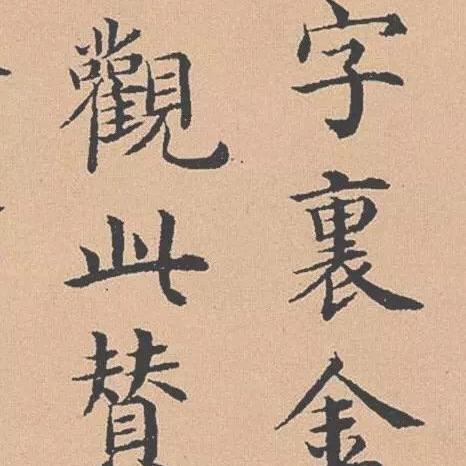 字裏金
觀此賛